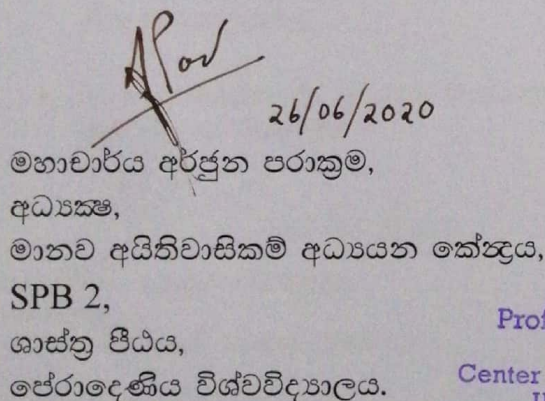 26/06/2020
මහාචාර්ය අර්ජුන පරාක්‍රම,
අධ්‍යක්ෂ,
මානව අයිතිවාසිකම් අධ්‍යයන කේන්ද්‍රය,
SPB 2,
ශාස්ත්‍ර පීඨය,
පේරාදෙණිය විශ්වවිද්‍යාලය.
Center